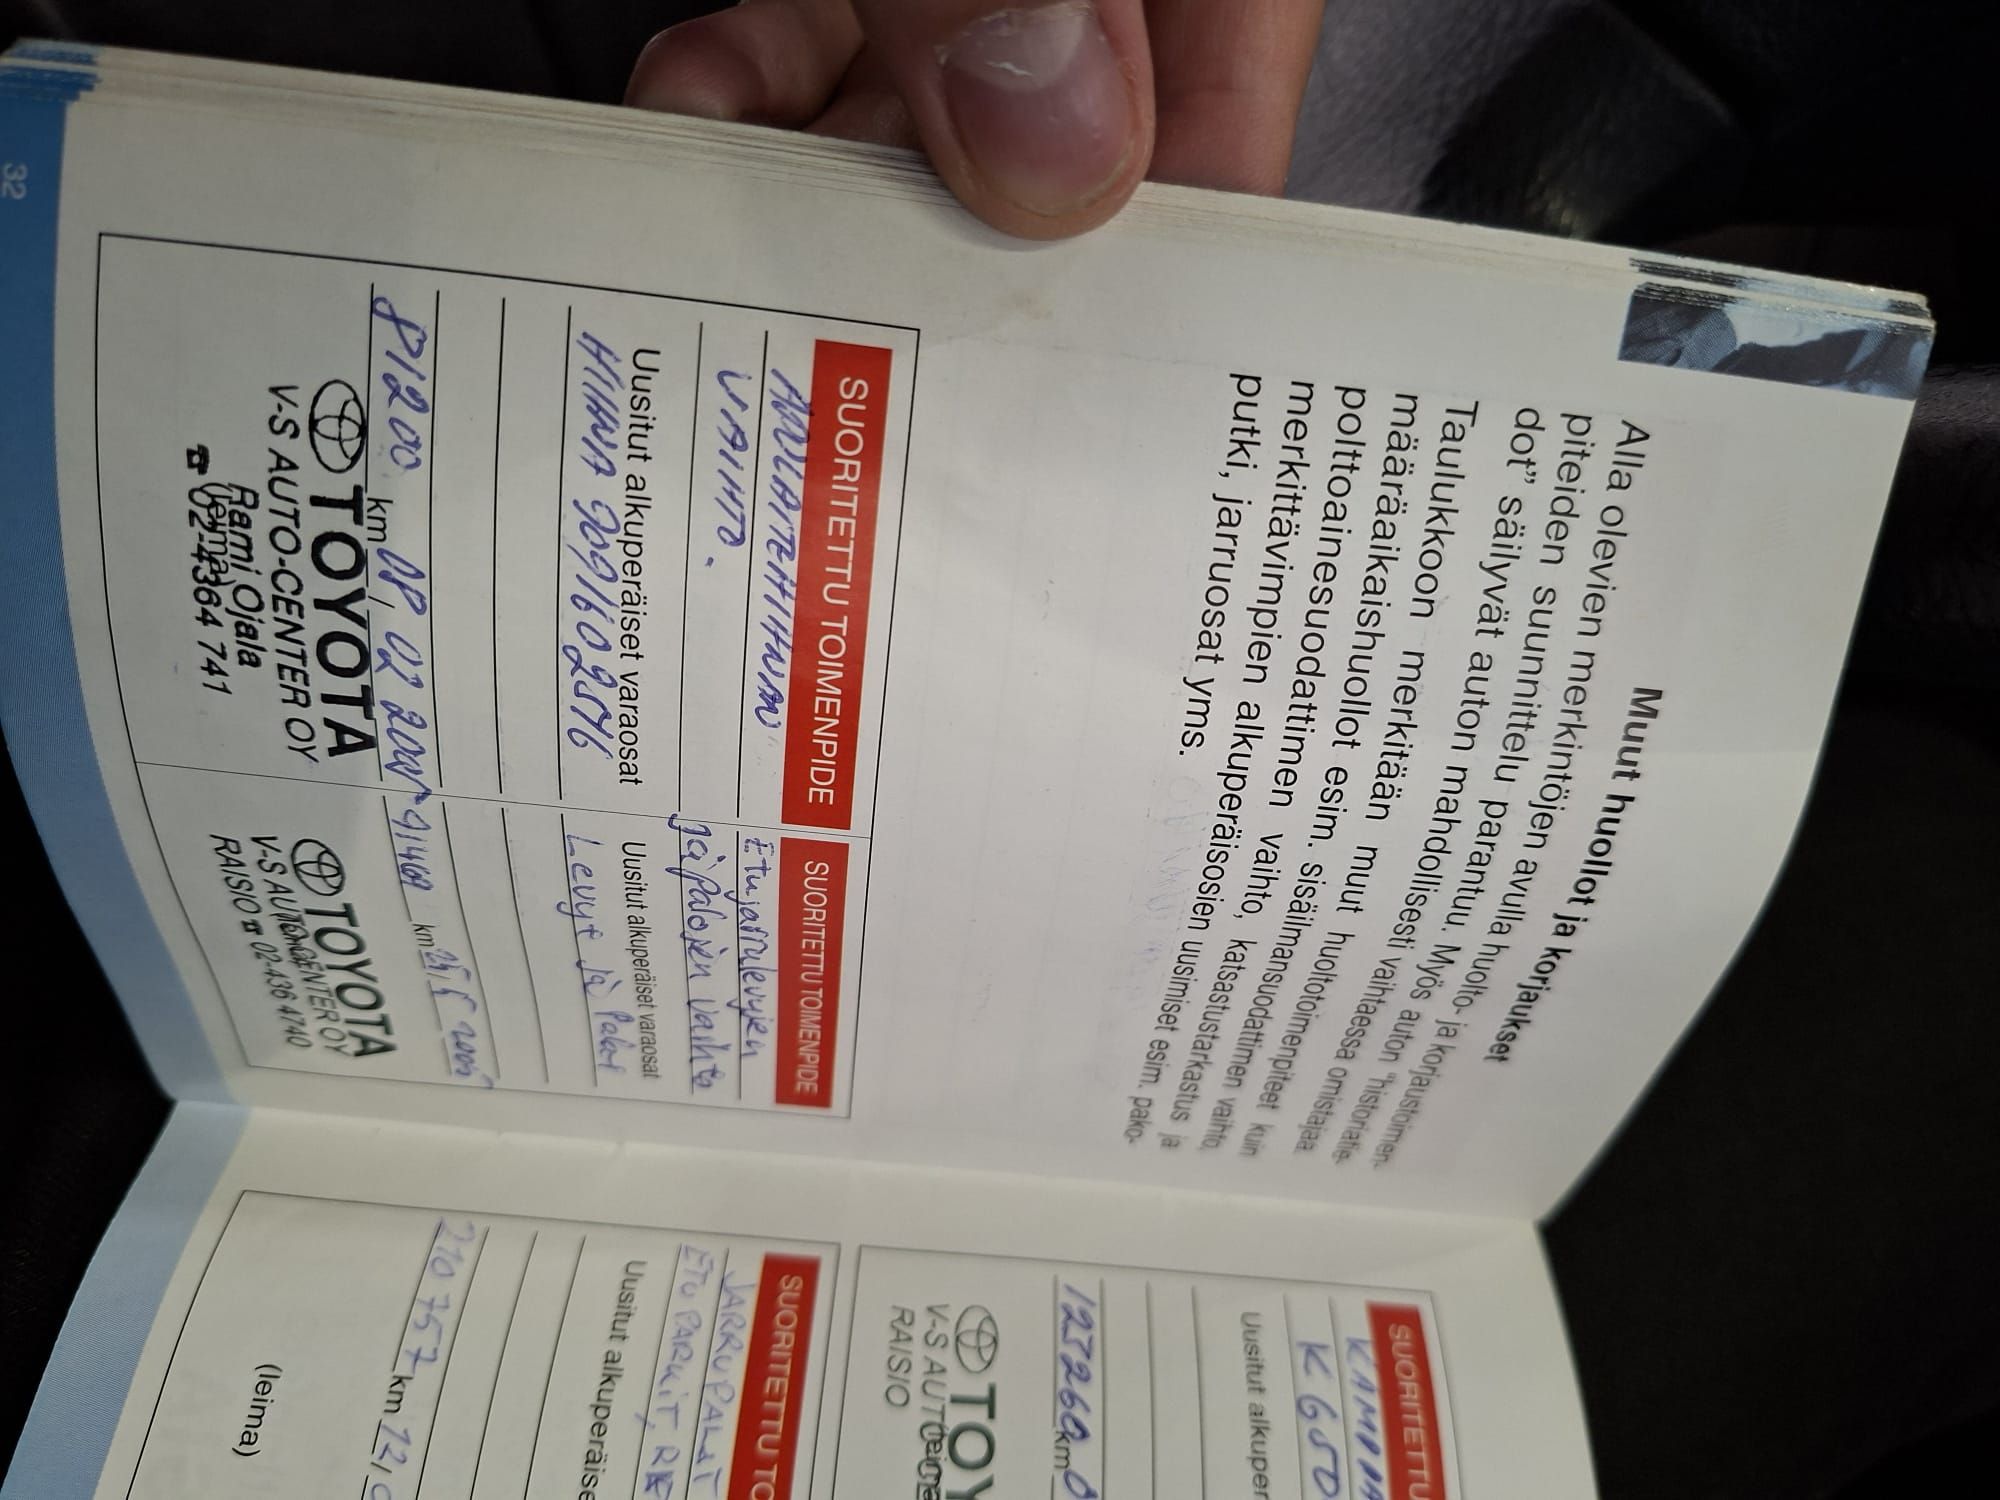 Muut huollot ja korjaukset
Alla olevien merkintöjen avulla huolto- ja korjaustoimen-
piteiden suunnittelu parantuu. Myös auton "historiatie-
dot" säilyvät auton mahdollisesti vaihtaessa omistajaa
Taulukkoon merkitään muut huoltotoimenpiteet kuin
määräaikaishuollot esim. sisäilmansuodattimen vaihto,
polttoainesuodattimen vaihto, katsastustarkastus ja
merkittävimpien alkuperäisosien uusimiset esim. pako-
putki, jarruosat yms.
SUORITETTU TOIMENPIDE
VAIHTO.
Uusitut alkuperäiset varaosat
HIHNA
81200 km
TOYOTA
V-S AUTO-CENTER OY
Rami Ojala
(leima)
☎ 02-4364 741
SUORITETTU TOIMENPIDE
Etujarrulevyjen
ja palojen vaihto
Uusitut alkuperäiset varaosat
Levyt ja Palat
km
TOYOTA
V-S AUTO-CENTER OY
RAISIO ☎ 02-436 4740
32
SUORITETTU
K 650
Uusitut alkuper
km
TOY
V-S AUTO
RAISIO
SUORITETTU TO
JARRUPALAT
Uusitut alkuperäise
210 757 km 12/
(leima)